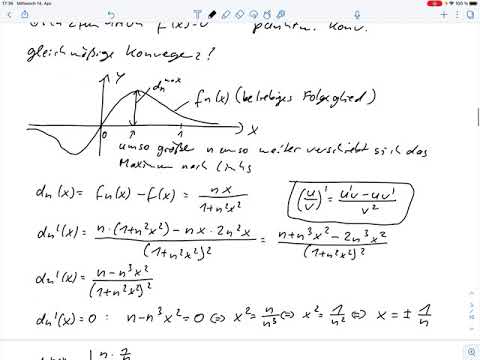 17:36 Mittwoch 14. Apr.
100 %
f(x)=0 punktw. konv.
gleichmäßige Konvergenz?
y
dn^max
fn(x) (beliebiges Folgeglied)
0 1 x
umso größer n umso weiter verschiebt sich das
Maximum nach links
dn(x) = fn(x) - f(x) = nx/(1+n²x²)
(u/v)' = (u'v - uv')/v²
dn'(x) = (n·(1+n²x²) - nx·2n²x)/(1+n²x²)² = (n+n³x² - 2n³x²)/(1+n²x²)²
dn'(x) = (n-n³x²)/(1+n²x²)²
dn'(x) = 0 : n-n³x² = 0 ⇔ x² = n/n³ ⇔ x² = 1/n² ⇔ x = ± 1/n